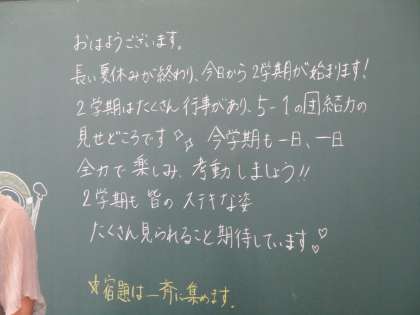 おはようございます。
長い夏休みが終わり、今日から2学期が始まります!
2学期はたくさん行事があり、5-1の団結力の
見せどころです♪♪ 今学期も一日、一日
全力で楽しみ、考動しましょう!!
2学期も皆のステキな姿
たくさん見られること期待しています♡♡
☆宿題は一斉に集めます。